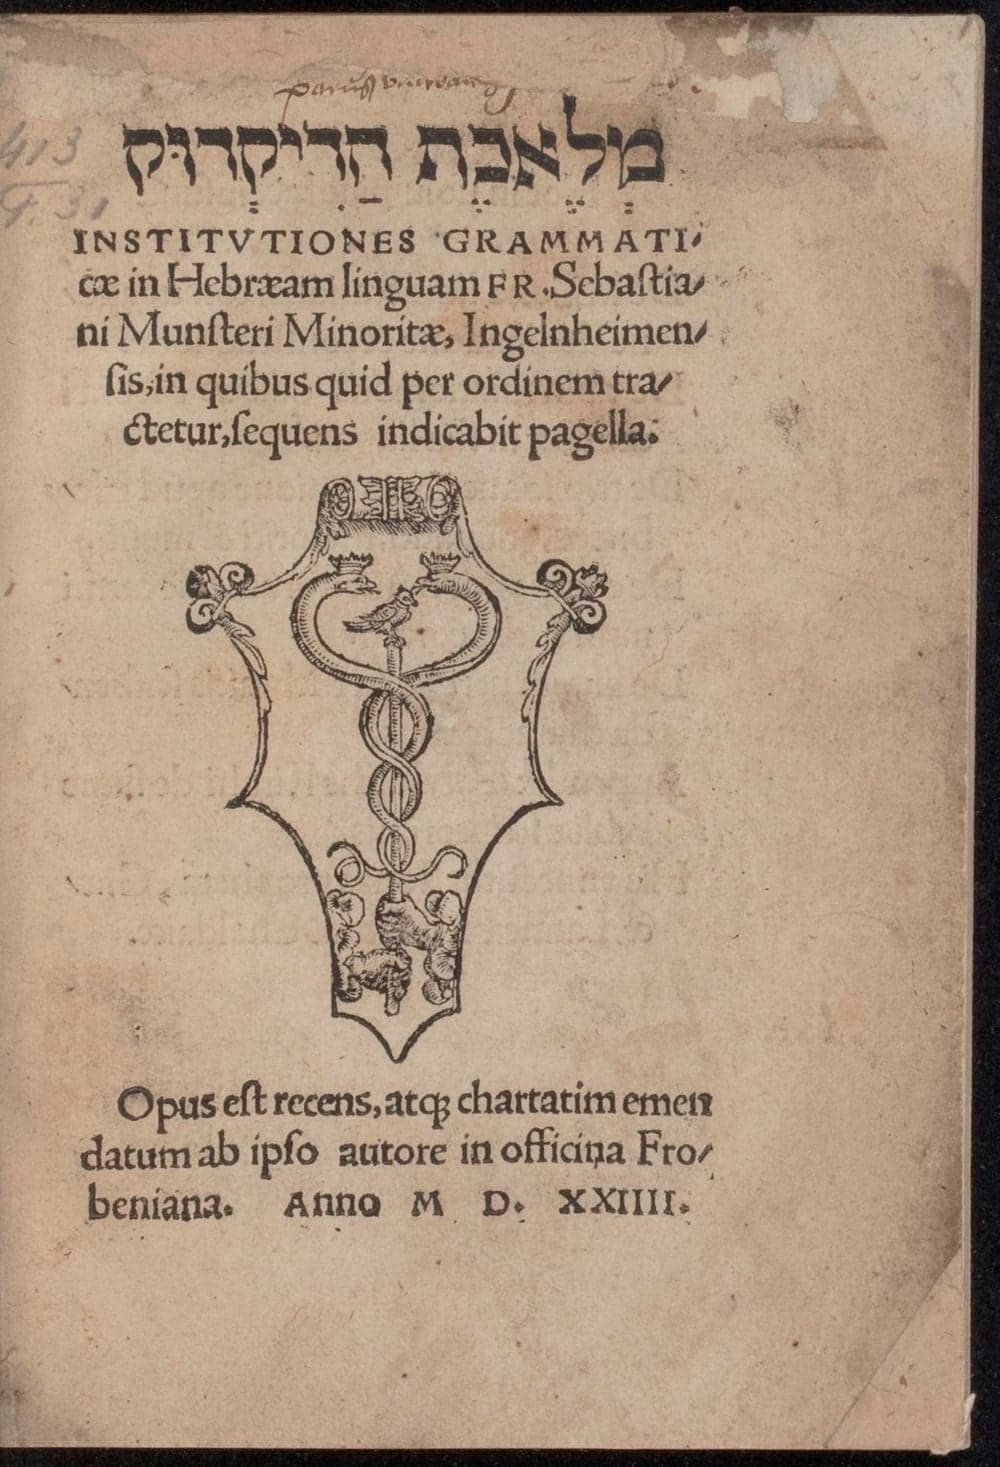 413
מְלֶאכֶת הַדִיקְדוּק
INSTITVTIONES GRAMMATI⸗
cæ in Hebræam linguam FR. Sebaſtia⸗
ni Munſteri Minoritæ, Ingelnheimen⸗
ſis, in quibus quid per ordinem tra⸗
ctetur, ſequens indicabit pagella.
Opus eſt recens, atqꝫ chartatim emen
datum ab ipſo autore in officina Fro⸗
beniana. Anno M D. XXIIII.